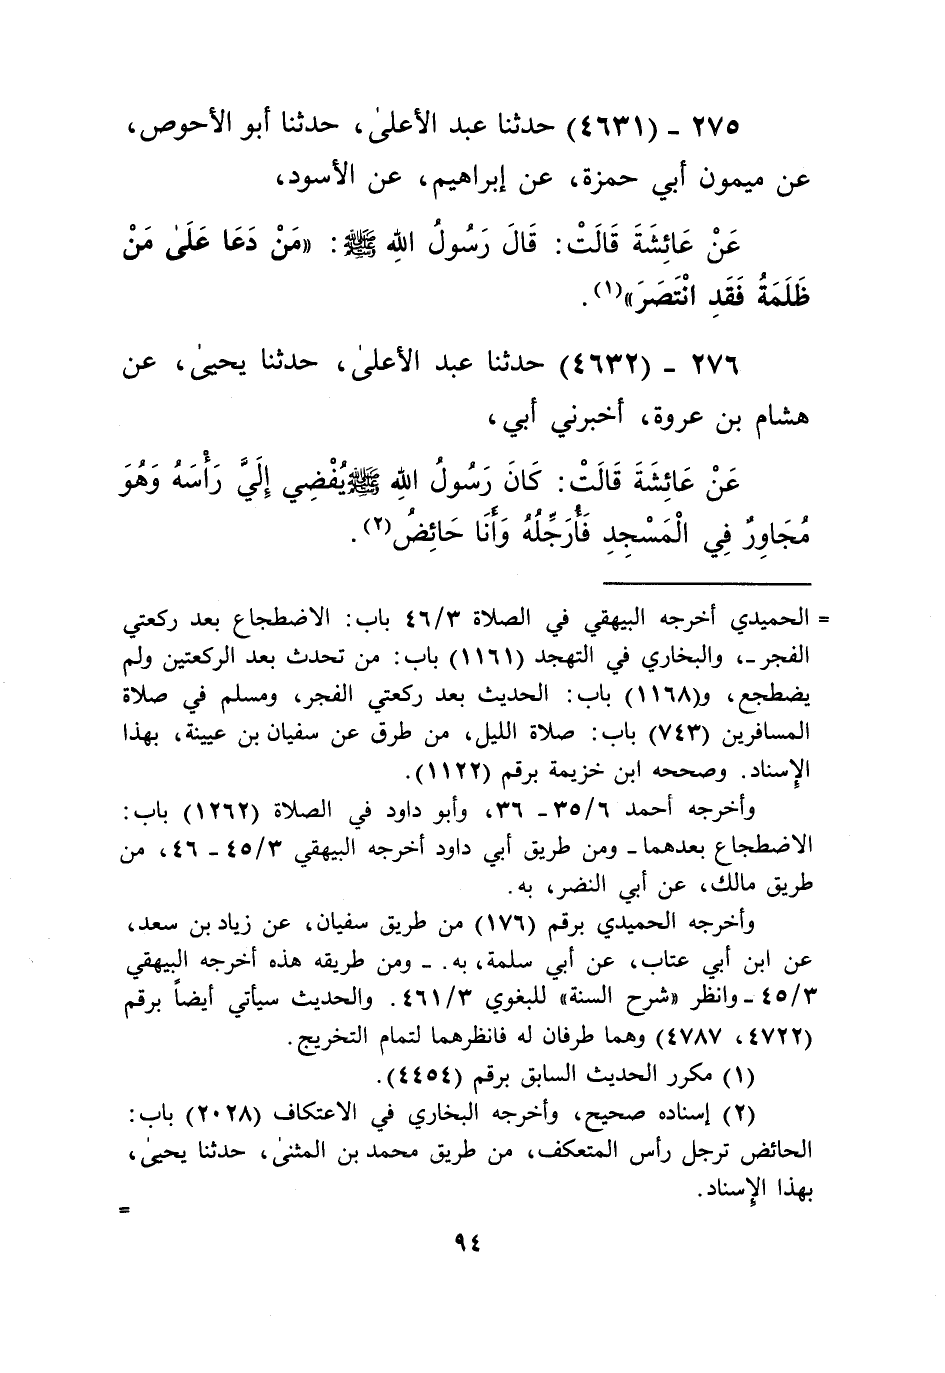 ٢٧٥ - (٤٦٣١) حدثنا عبد الأعلىٰ، حدثنا أبو الأحوص،
عن ميمون أبي حمزة، عن إبراهيم، عن الأسود،
عَنْ عَائِشَةَ قَالَتْ: قَالَ رَسُولُ اللهِ ﷺ: «مَنْ دَعَا عَلَىٰ مَنْ
ظَلَمَهُ فَقَدِ انْتَصَرَ»(١).
٢٧٦ - (٤٦٣٢) حدثنا عبد الأعلىٰ، حدثنا يحيىٰ، عن
هشام بن عروة، أخبرني أبي،
عَنْ عَائِشَةَ قَالَتْ: كَانَ رَسُولُ اللهِ ﷺ يُفْضِي إِلَيَّ رَأْسَهُ وَهُوَ
مُجَاوِرٌ فِي الْمَسْجِدِ فَأُرَجِّلُهُ وَأَنَا حَائِضٌ(٢).
= الحميدي أخرجه البيهقي في الصلاة ٤٦/٣ باب: الاضطجاع بعد ركعتي
الفجر -، والبخاري في التهجد (١١٦١) باب: من تحدث بعد الركعتين ولم
يضطجع، و(١١٦٨) باب: الحديث بعد ركعتي الفجر، ومسلم في صلاة
المسافرين (٧٤٣) باب: صلاة الليل، من طرق عن سفيان بن عيينة، بهذا
الإسناد. وصححه ابن خزيمة برقم (١١٢٢).
وأخرجه أحمد ٣٥/٦ - ٣٦، وأبو داود في الصلاة (١٢٦٢) باب:
الاضطجاع بعدهما - ومن طريق أبي داود أخرجه البيهقي ٤٥/٣ - ٤٦، من
طريق مالك، عن أبي النضر، به.
وأخرجه الحميدي برقم (١٧٦) من طريق سفيان، عن زياد بن سعد،
عن ابن أبي عتاب، عن أبي سلمة، به. - ومن طريقه هذه أخرجه البيهقي
٤٥/٣ - وانظر «شرح السنة» للبغوي ٤٦١/٣. والحديث سيأتي أيضاً برقم
(٤٧٢٢، ٤٧٨٧) وهما طرفان له فانظرهما لتمام التخريج.
(١) مكرر الحديث السابق برقم (٤٤٥٤).
(٢) إسناده صحيح، وأخرجه البخاري في الاعتكاف (٢٠٢٨) باب:
الحائض ترجل رأس المعتكف، من طريق محمد بن المثنىٰ، حدثنا يحيىٰ،
بهذا الإسناد.
=
٩٤